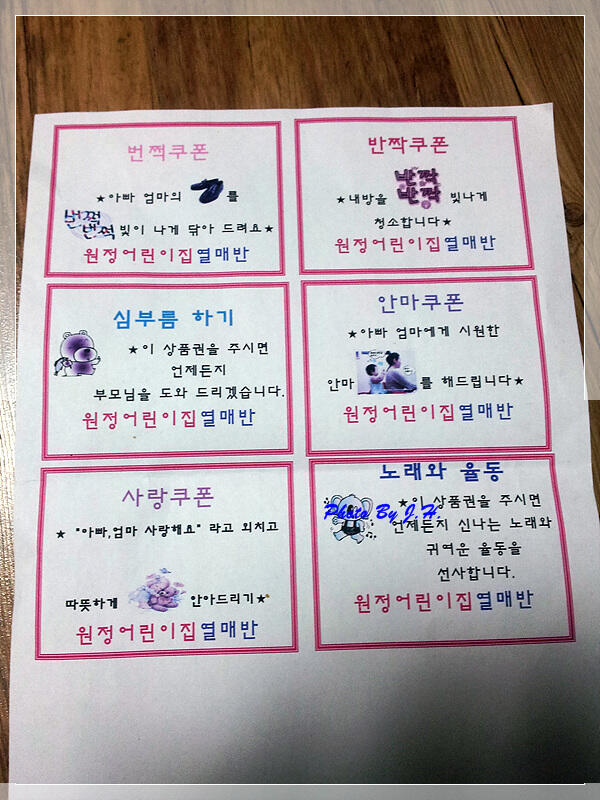 번쩍쿠폰
★아빠 엄마의 를
번쩍
번쩍 빛이 나게 닦아 드려요★
원정어린이집열매반
반짝쿠폰
★내방을 반짝 반짝 빛나게
청소합니다★
원정어린이집열매반
심부름 하기
★이 상품권을 주시면
언제든지
부모님을 도와 드리겠습니다.
원정어린이집열매반
안마쿠폰
★아빠 엄마에게 시원한
안마 를 해드립니다★
원정어린이집열매반
사랑쿠폰
★ "아빠,엄마 사랑해요" 라고 외치고
따뜻하게 안아드리기★
원정어린이집열매반
노래와 율동
★이 상품권을 주시면
언제든지 신나는 노래와
귀여운 율동을
선사합니다.
원정어린이집열매반
Photo By J.H.